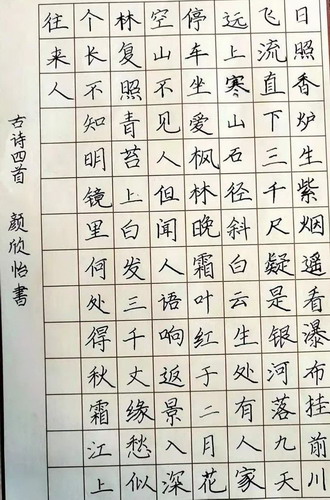 日照香炉生紫烟遥看瀑布挂前川
飞流直下三千尺疑是银河落九天
远上寒山石径斜白云生处有人家
停车坐爱枫林晚霜叶红于二月花
空山不见人但闻人语响返景入深
林复照青苔上白发三千丈缘愁似
个长不知明镜里何处得秋霜江上
往来人
古诗四首 颜欣怡書